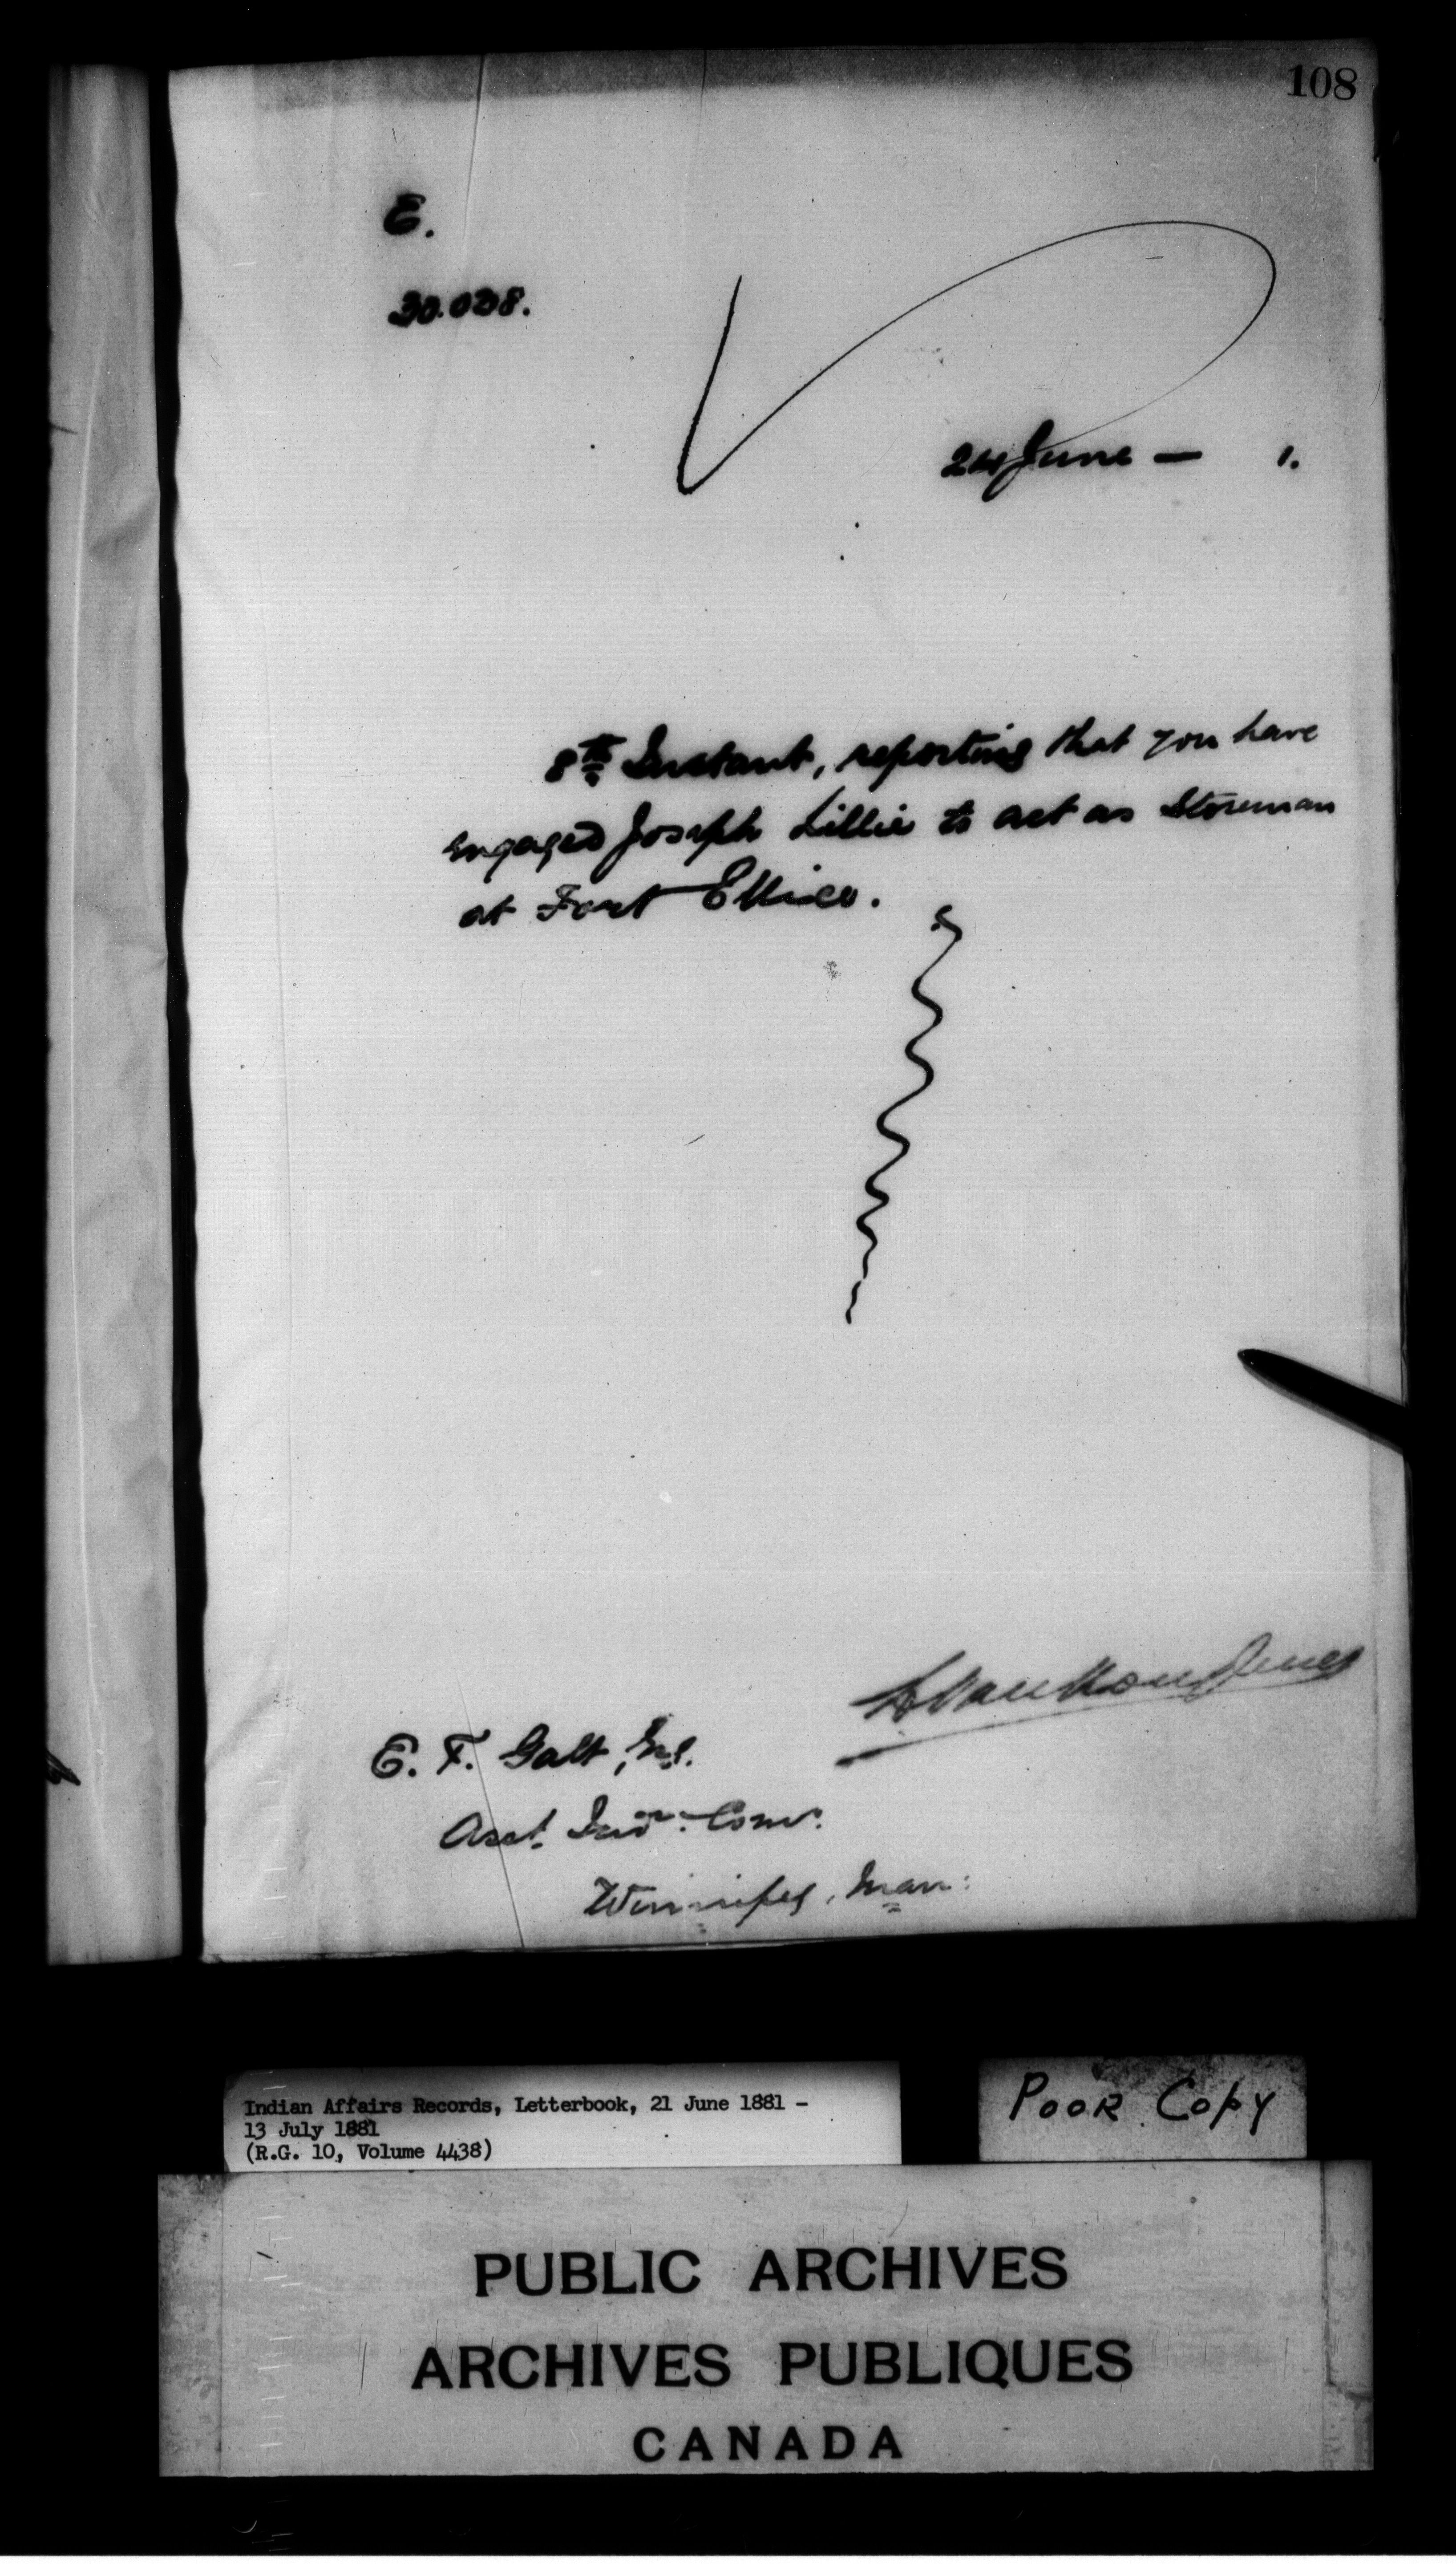 108
E.
30.038.
24 June — 1.
8th Instant, reporting that you have
engaged Joseph Lillie to act as Storeman
at Fort Ellice.
E. F. Galt, Esq.
Asst. Indn. Comr.
Winnipeg, Man:
Indian Affairs Records, Letterbook, 21 June 1881 -
13 July 1881
(R.G. 10, Volume 4438)
POOR COPY
PUBLIC ARCHIVES
ARCHIVES PUBLIQUES
CANADA